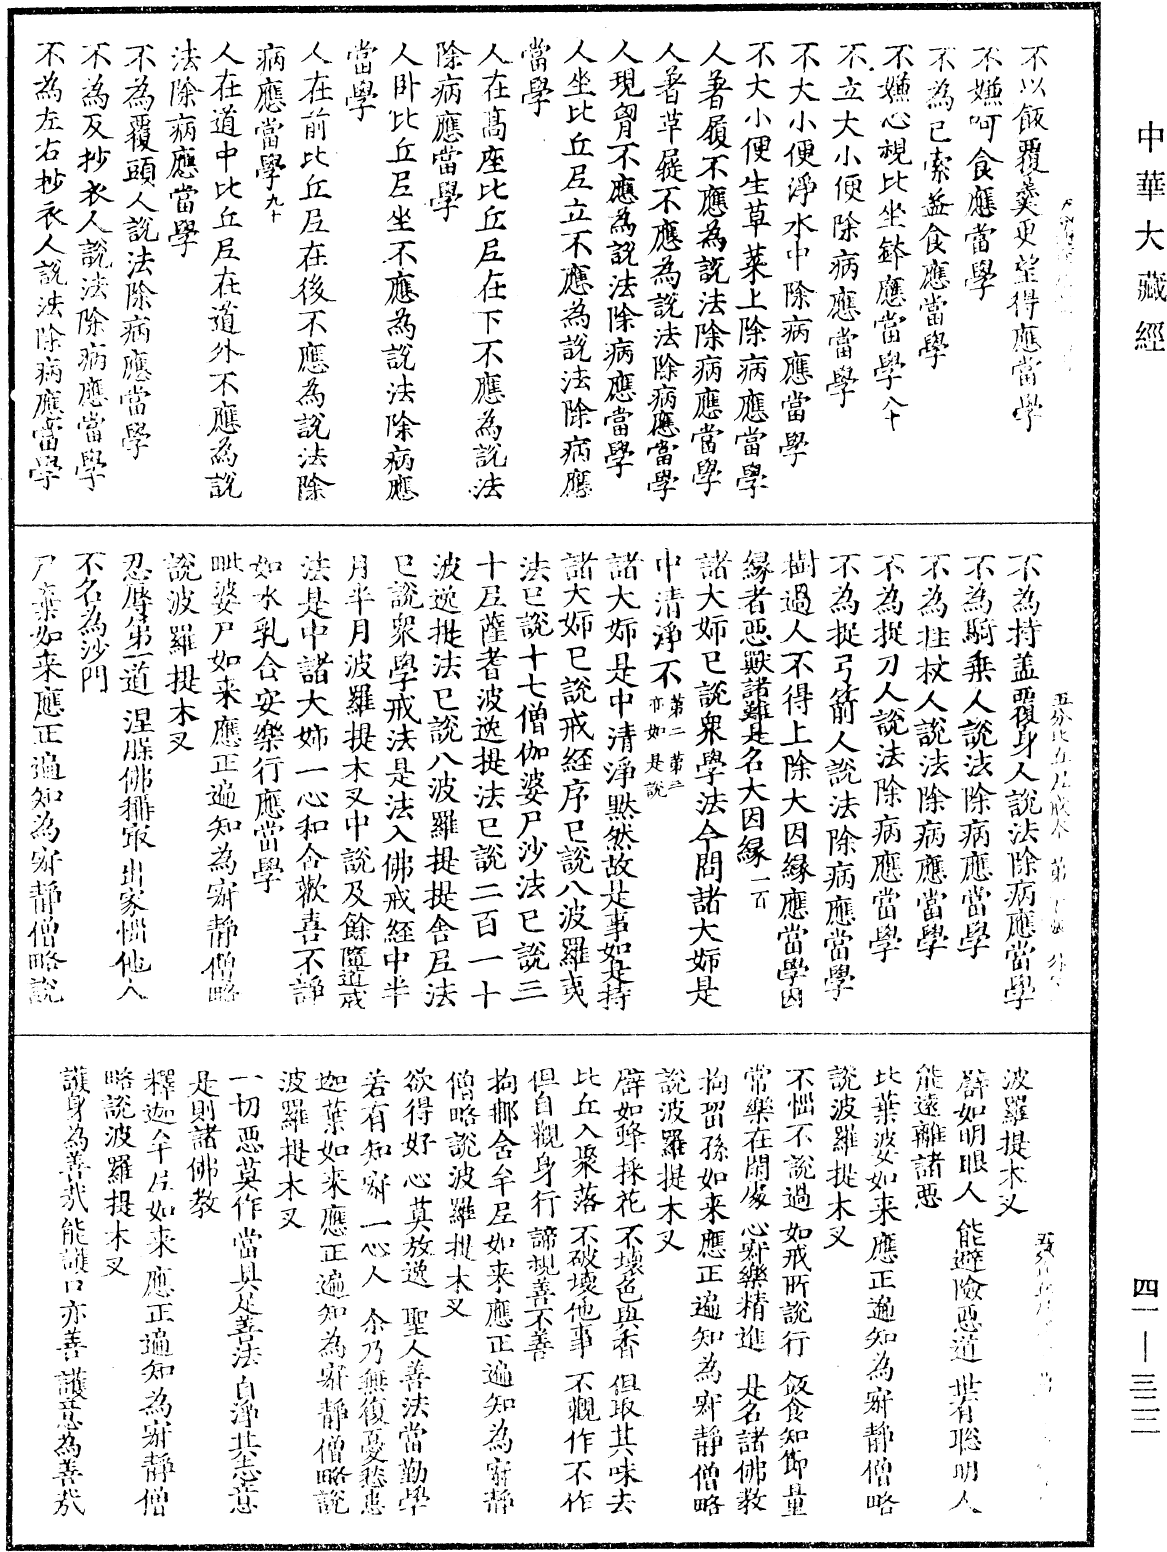 中華大藏經
四一—三二二
不以飯覆羹更望得應當學
不嫌呵食應當學
不為已索益食應當學
不嫌心視比坐鉢應當學八十
不立大小便除病應當學
不大小便淨水中除病應當學
不大小便生草菜上除病應當學
人著履不應為說法除病應當學
人著草屣不應為說法除病應當學
人現胷不應為說法除病應當學
人坐比丘𡰱立不應為說法除病應
當學
人在髙座比丘𡰱在下不應為說法
除病應當學
人卧比丘𡰱坐不應為說法除病應
當學
人在前比丘𡰱在後不應為說法除
病應當學九十
人在道中比丘𡰱在道外不應為說
法除病應當學
不為覆頭人說法除病應當學
不為反抄衣人說法除病應當學
不為左右抄衣人說法除病應當學
不為持盖覆身人說法除病應當學
不為騎乘人說法除病應當學
不為拄杖人說法除病應當學
不為捉刀人說法除病應當學
不為捉弓箭人說法除病應當學
樹過人不得上除大因緣應當學因
緣者惡獸諸難是名大因緣一百
諸大姉已說衆學法今問諸大姉是
中清淨不第二第三亦如是說
諸大姉是中清淨默然故是事如是持
諸大姉已說戒經序已說八波羅夷
法已說十七僧伽婆尸沙法已說三
十𡰱薩耆波逸提法已說二百一十
波逸提法已說八波羅提提舍𡰱法
已說衆學戒法是法入佛戒經中半
月半月波羅提木叉中說及餘隨道戒
法是中諸大姉一心和合歡喜不諍
如水乳合安樂行應當學
毗婆尸如来應正遍知為寂靜僧略
說波羅提木叉
忍辱第一道 涅槃佛稱㝡 出家惱他人
不名為沙門
尸棄如来應正遍知為寂靜僧略說
波羅提木叉
譬如明眼人 能避險惡道 世有聡明人
能遠離諸惡
比葉波如来應正遍知為寂靜僧略
說波羅提木叉
不惱不說過 如戒所說行 飯食知節量
常樂在閑處 心寂樂精進 是名諸佛教
拘留孫如来應正遍知為寂靜僧略
說波羅提木叉
譬如蜂採花 不壞色與香 但取其味去
比丘入聚落 不破壞他事 不觀作不作
但自觀身行 諦視善不善
拘那舍牟𡰱如来應正遍知為寂靜
僧略說波羅提木叉
欲得好心莫放逸 聖人善法當勤學
若有知寂一心人 尒乃無復憂愁患
迦葉如来應正遍知為寂靜僧略說
波羅提木叉
一切惡莫作 當具足善法 自淨其志意
是則諸佛教
釋迦牟𡰱如来應正遍知為寂靜僧
略說波羅提木叉
護身為善哉 能護口亦善 護意為善哉